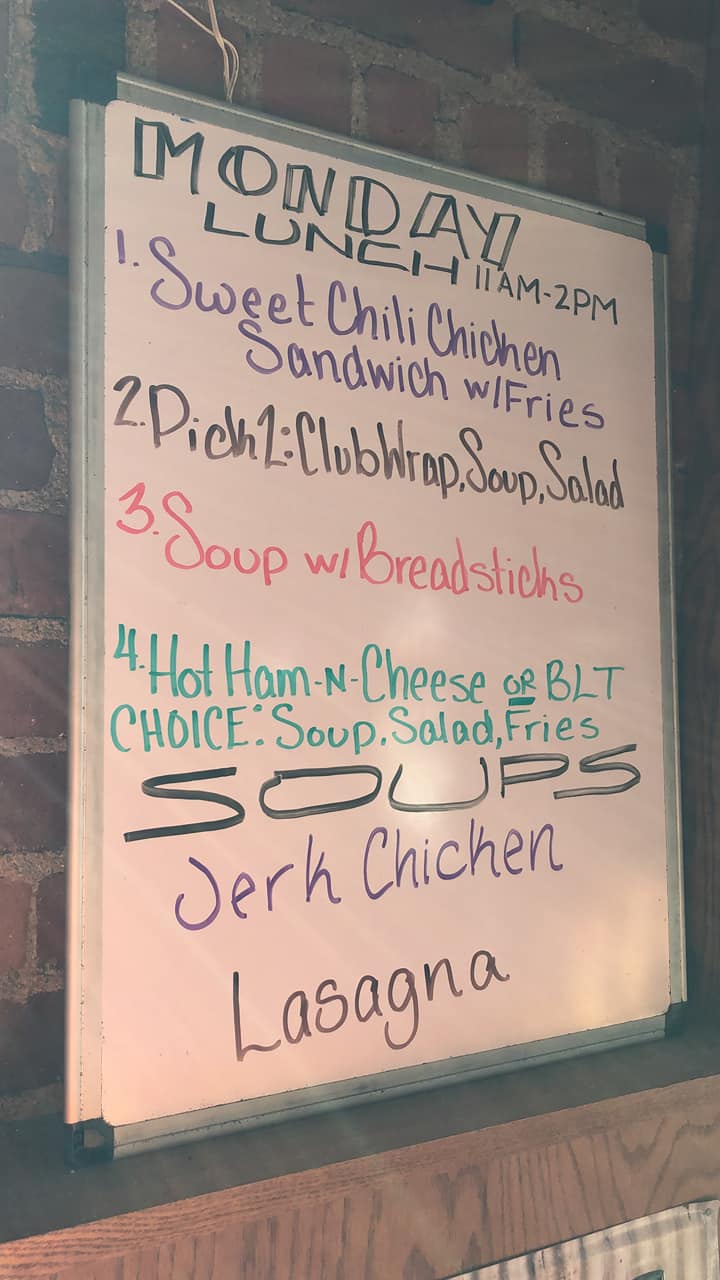 MONDAY
LUNCH 11AM-2PM
1. Sweet Chili Chicken
Sandwich w/Fries
2. Pick 2: Club Wrap, Soup, Salad
3. Soup w/ Breadsticks
4. Hot Ham-N-Cheese OR BLT
CHOICE: Soup, Salad, Fries
SOUPS
Jerk Chicken
Lasagna